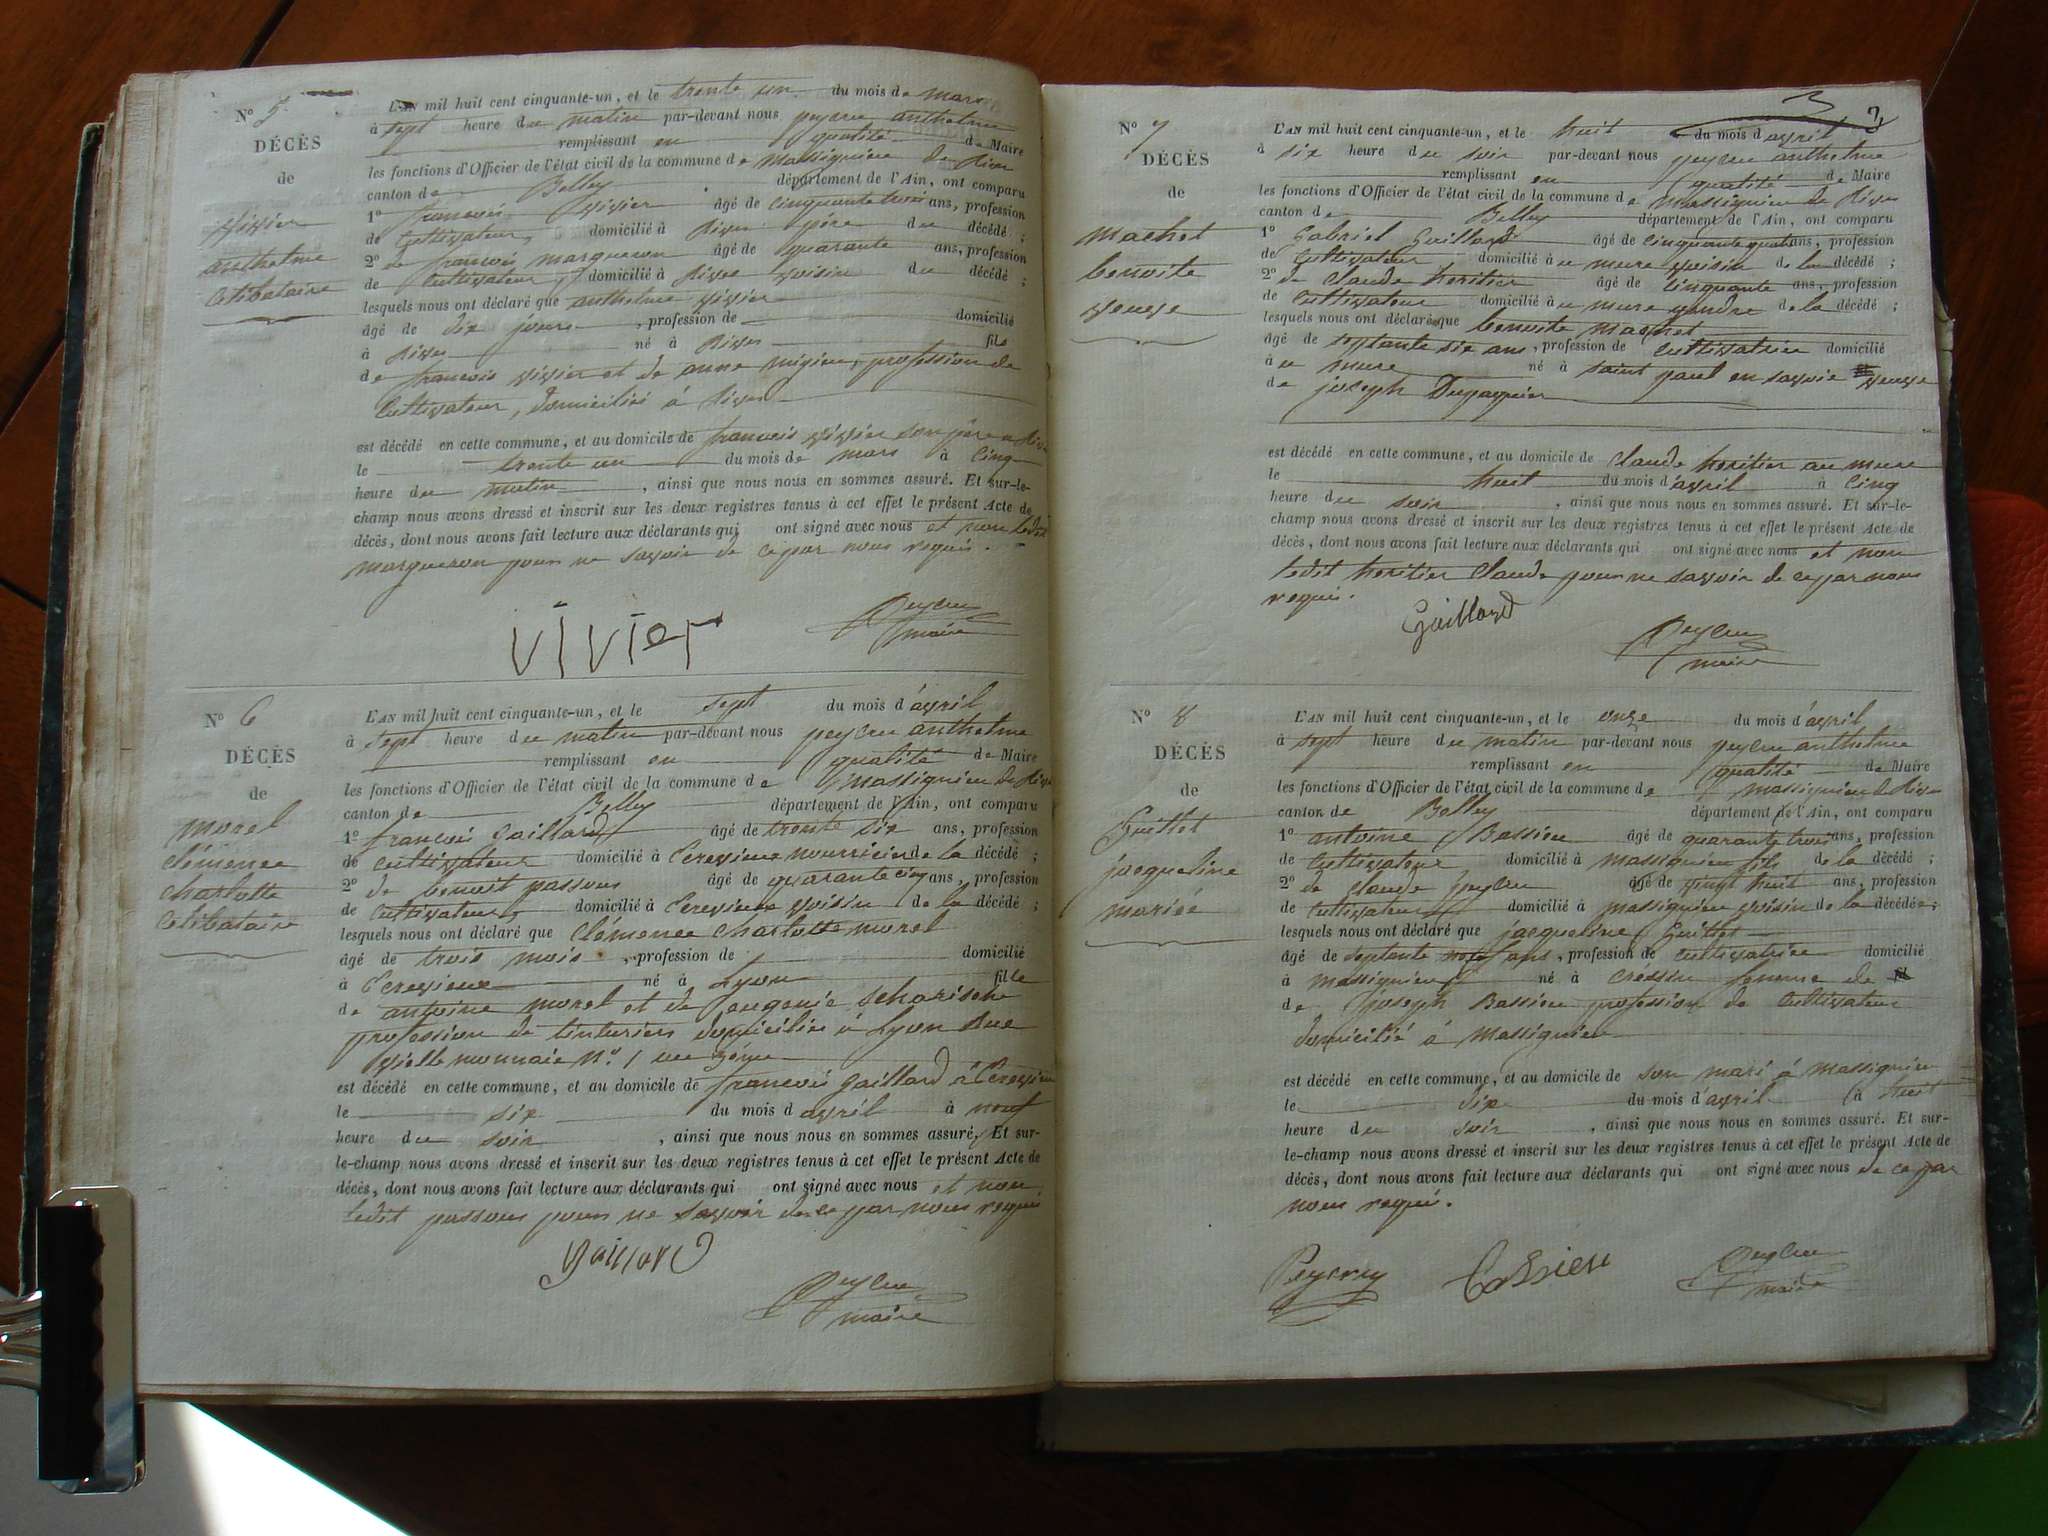 N° 5
DÉCÈS
de
vivier
anthelme
Célibataire
L'AN mil huit cent cinquante-un, et le trente un du mois de mars
à sept heure du matin par-devant nous peycru anthelme
remplissant en qualité de Maire
les fonctions d'Officier de l'état civil de la commune de Massignieu de Rives
canton de Belley département de l'Ain, ont comparu
1° francois vivier âgé de cinquante trois ans, profession
de Cultivateur, domicilié à Rives père du décédé ;
2° de francois marqueron âgé de quarante ans, profession
de Cultivateur domicilié à Rives voisin du décédé ;
lesquels nous ont déclaré que anthelme vivier
âgé de dix jours, profession de domicilié
à Rives né à Rives fils
de francois vivier et de anne migieu, profession de
Cultivateur, domiciliés à Rives
est décédé en cette commune, et au domicile de francois vivier son père a Rives
le trente un du mois de mars à cinq
heure du matin, ainsi que nous nous en sommes assuré. Et sur-le-
champ nous avons dressé et inscrit sur les deux registres tenus à cet effet le présent Acte de
décès, dont nous avons fait lecture aux déclarants qui ont signé avec nous et non ledit
marqueron pour ne savoir de ce par nous requis.
vivier
Peycru
maire
N° 6
DÉCÈS
de
morel
clémence
charlotte
Célibataire
L'AN mil huit cent cinquante-un, et le sept du mois d'avril
à sept heure du matin par-devant nous peycru anthelme
remplissant en qualité de Maire
les fonctions d'Officier de l'état civil de la commune de Massignieu de Rives
canton de Belley département de l'Ain, ont comparu
1° francois Gaillard âgé de trente six ans, profession
de cultivateur domicilié à Cerevieux nourricier de la décédé ;
2° de benoit passous âgé de quarante cinq ans, profession
de Cultivateur, domicilié à Cerevieux voisin de la décédé ;
lesquels nous ont déclaré que Clémence Charlotte morel
âgé de trois mois, profession de domicilié
à Cerevieux né à Lyon fille
de antoine morel et de eugenie
profession de tinturiers domiciliés à Lyon Rue
vielle monnaie N° 1 au
est décédé en cette commune, et au domicile de francois gaillard à Cerevieux
le six du mois d'avril à neuf
heure du soir, ainsi que nous nous en sommes assuré, Et sur-
le-champ nous avons dressé et inscrit sur les deux registres tenus à cet effet le présent Acte de
décès, dont nous avons fait lecture aux déclarants qui ont signé avec nous et non
ledit passous pour ne savoir de ce par nous requis
gaillard
Peycru
maire
3
N° 7
DÉCÈS
de
machet
benoite
veuve
L'AN mil huit cent cinquante-un, et le huit du mois d'avril
à six heure du soir par-devant nous peycru anthelme
remplissant en qualité de Maire
les fonctions d'Officier de l'état civil de la commune de Massignieu de Rives
canton de Belley département de l'Ain, ont comparu
1° Gabriel Gaillard âgé de cinquante quatre ans, profession
de Cultivateur domicilié à u mure voisin de la décédé ;
2° de Claude heritier âgé de cinquante ans, profession
de Cultivateur domicilié à u mure gendre de la décédé ;
lesquels nous ont déclaré que benoite Machet
âgé de septante six ans, profession de Cultivatrice domicilié
à u mure né à saint paul en savoie veuve
de joseph Dupasquier
est décédé en cette commune, et au domicile de Claude heritier au mure
le huit du mois d'avril à cinq
heure du soir, ainsi que nous nous en sommes assuré. Et sur-le-
champ nous avons dressé et inscrit sur les deux registres tenus à cet effet le présent Acte de
décès, dont nous avons fait lecture aux déclarants qui ont signé avec nous et non
ledit heritier Claude pour ne savoir de ce par nous
requis.
Gaillard
Peycru
maire
N° 8
DÉCÈS
de
Guillet
jacqueline
mariée
L'AN mil huit cent cinquante-un, et le onze du mois d'avril
à sept heure du matin par-devant nous peycru anthelme
remplissant en qualité de Maire
les fonctions d'Officier de l'état civil de la commune de Massignieu de Rives
canton de Belley département de l'Ain, ont comparu
1° antoine Bassieu âgé de quarante trois ans, profession
de Cultivateur domicilié à Massignieu fils de la décédé ;
2° de Claude Peycru âgé de vingt huit ans, profession
de Cultivateur domicilié à Massignieu voisin de la décédée ;
lesquels nous ont déclaré que jacqueline Guillet
âgé de septante neuf ans, profession de Cultivatrice domicilié
à Massignieu né à Créssin femme de
de Joseph Bassieu profession de Cultivateur
domicilié à Massignieu
est décédé en cette commune, et au domicile de son mari à Massignieu
le dix du mois d'avril à huit
heure du soir, ainsi que nous nous en sommes assuré. Et sur-
le-champ nous avons dressé et inscrit sur les deux registres tenus à cet effet le présent Acte de
décès, dont nous avons fait lecture aux déclarants qui ont signé avec nous de ce par
nous requis.
Peycru Bassieu Peycru
maire